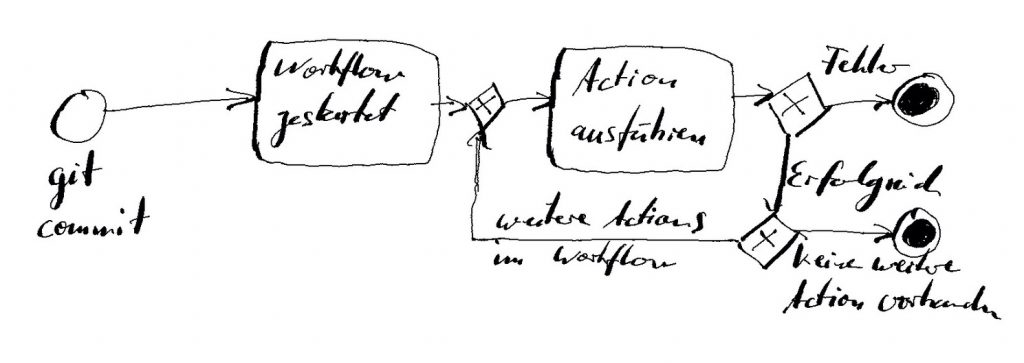 Fehler
Workflow
gestartet
Action
ausführen
git
commit
Erfolgreich
weitere Actions
im Workflow
Keine weitere
Action vorhanden